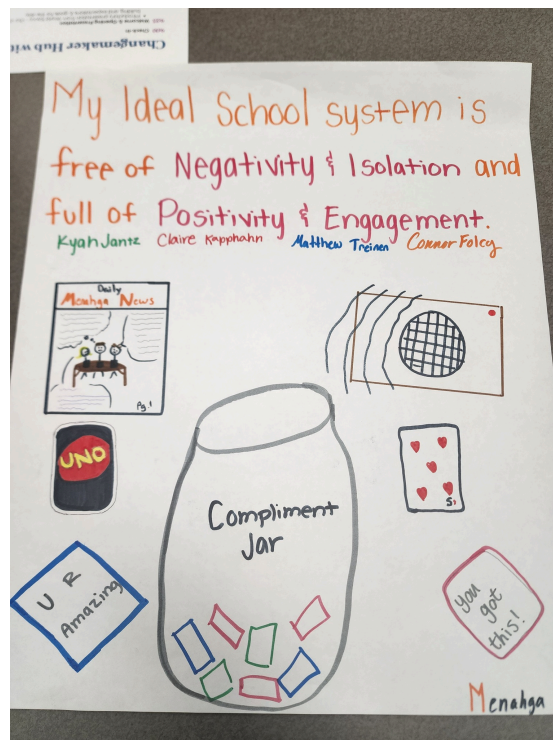 Changemaker Hub wi
My Ideal School system is
free of Negativity & Isolation and
full of Positivity & Engagement.
Kyah Jantz Claire Kapphahn Matthew Treinen Connor Foley
Daily
Menahga News
Pg.1
UNO
5
Compliment
Jar
U R
Amazing
You
got
this!
Menahga